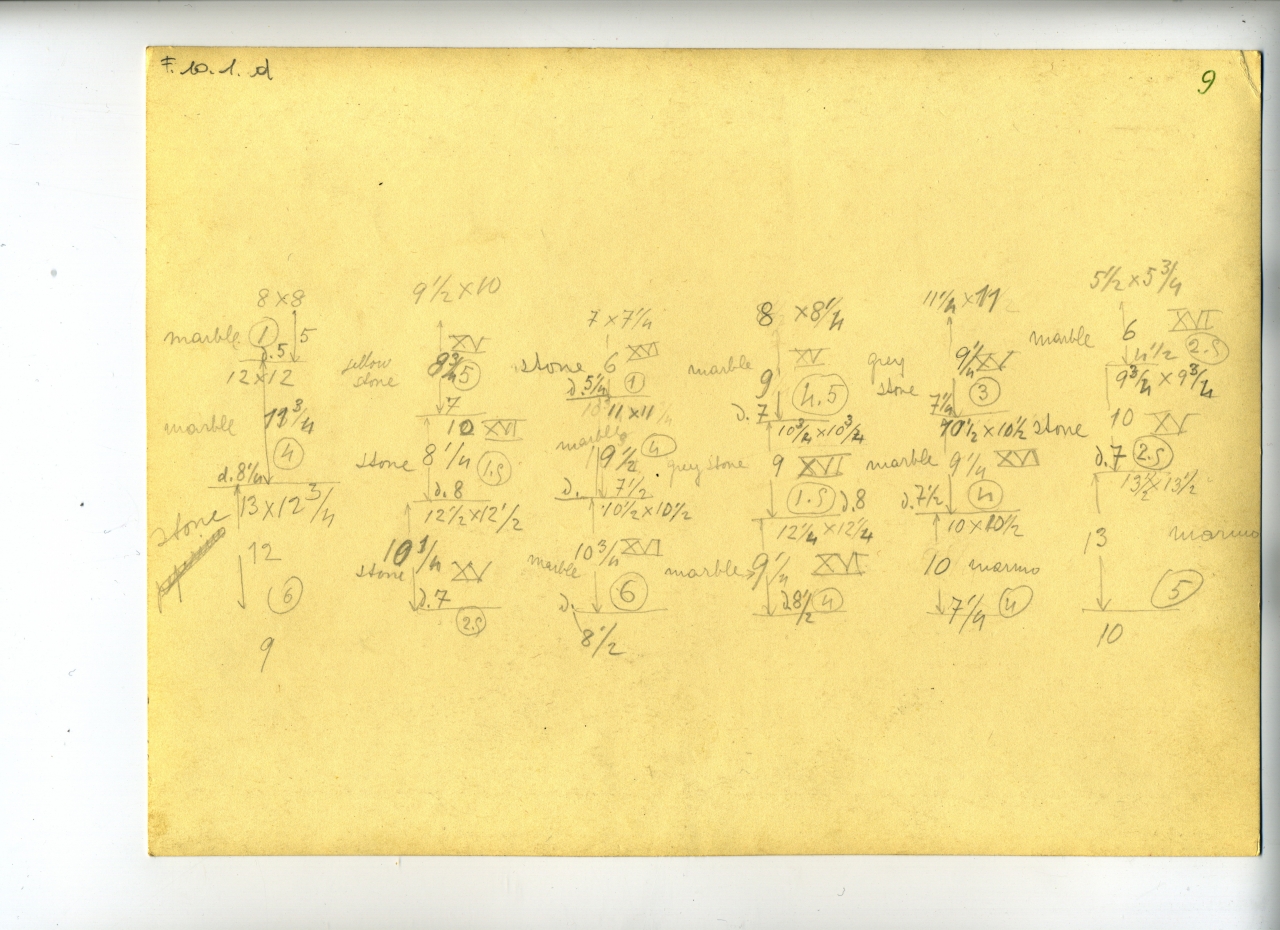 F. 10. 1. d
9
8 × 8
marble 1 5
d. 5
12 × 12
marble 11 3/4
4
d. 8 1/4
13 × 12 3/4
stone
12
6
9
9 1/2 × 10
XV
yellow
stone
5
7
10 XVI
stone 8 1/4 1.5
d. 8
12 1/2 × 12 1/2
10 1/4
stone XV
d. 7
2.5
7 × 7 1/4
stone 6 XVI
d. 5 1/4 1
11 × 11
marble 4
9 1/2
d. 7 1/2
10 1/2 × 10 1/2
10 3/4 XVI
marble 6
d.
8 1/2
8 × 8 1/4
marble XV
9 4.5
d. 7
10 3/4 × 10 3/4
grey stone 9 XVI
1.5 d. 8
12 1/4 × 12 1/4
marble 9 1/4 XVI
d. 8 1/2 4
11 1/4 × 11
grey
stone 9 1/4 XVI
3
7 1/4
10 1/2 × 10 1/2
marble 9 1/4 XVI
d. 7 1/2 4
10 × 10 1/2
10 marmo
7 1/4 4
5 1/2 × 5 3/4
marble 6 XVI
4 1/2 2.5
9 3/4 × 9 3/4
stone 10 XV
d. 7 2.5
13 1/2 × 13 1/2
13 marmo
5
10